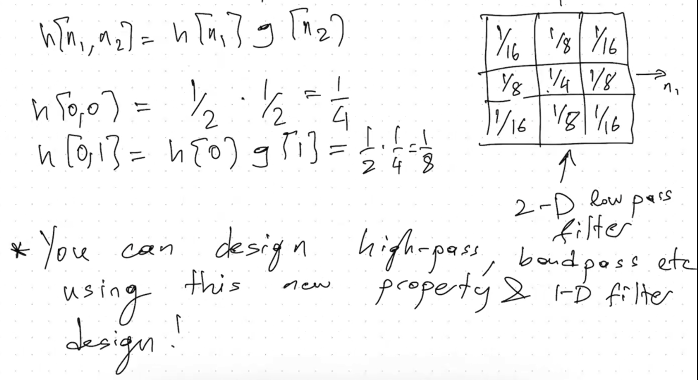 h[n₁, n₂] = h[n₁] g[n₂]
h[0,0] = 1/2 · 1/2 = 1/4
h[0,1] = h[0] g[1] = 1/2 · 1/4 = 1/8
1/16 1/8 1/16
1/8 1/4 1/8
n₁
1/16 1/8 1/16
2-D low pass
filter
* You can design high-pass, bandpass etc
using this new property & 1-D filter
design!